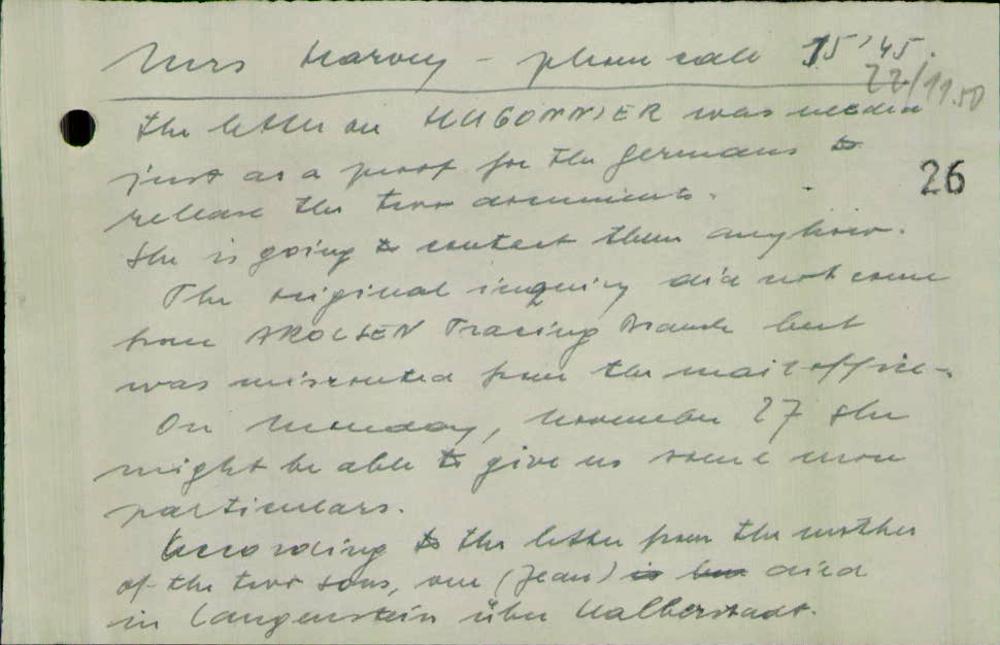 Mrs Harvey - phone call 15'45.
22/11.50
The letter on HUGONNIER was needed
just as a proof for the germans to
release the two documents.
26
She is going to contact them anyhow.
The original inquiry did not come
from AROLSEN Tracing Branch but
was misrouted from the mail office -
On Monday, November 27 she
might be able to give us some more
particulars.
According to the letter from the mother
of the two sons, one (Jean) is died
in Langenstein über Halberstadt.